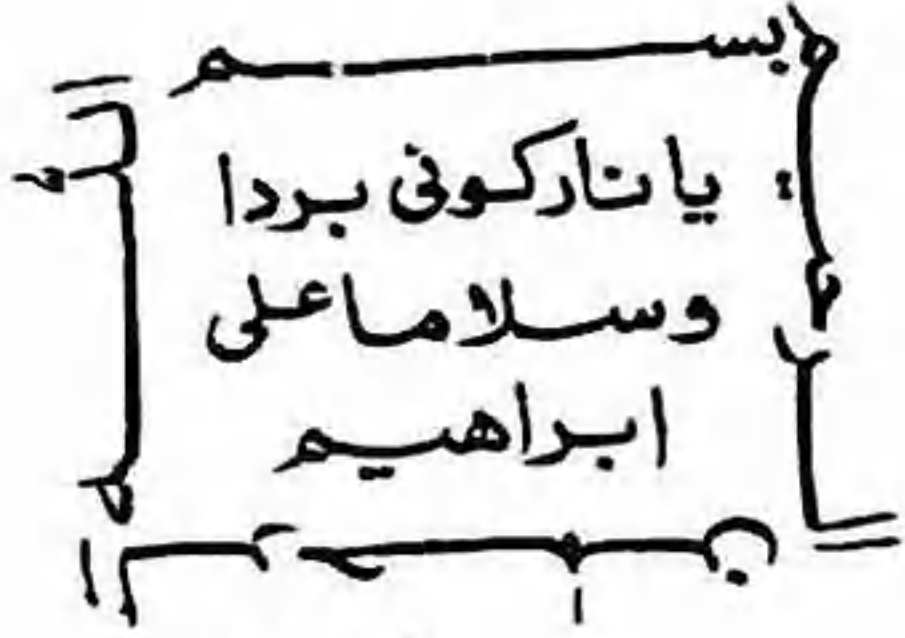 بسم
يا نار كونى بردا
وسلاما على
ابراهيم